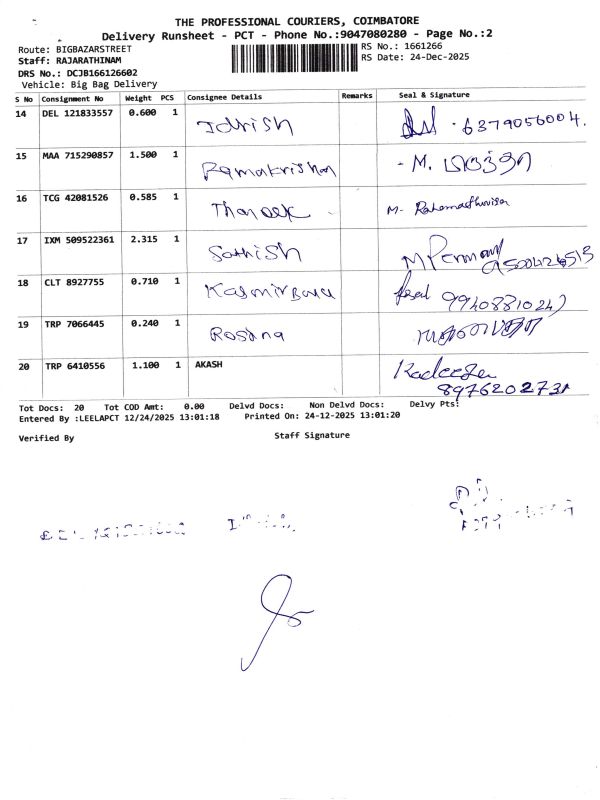 THE PROFESSIONAL COURIERS, COIMBATORE
Delivery Runsheet - PCT - Phone No.:9047080280 - Page No.:2
Route: BIGBAZARSTREET RS No.: 1661266
Staff: RAJARATHINAM RS Date: 24-Dec-2025
DRS No.: DCJB166126602
Vehicle: Big Bag Delivery
S No Consignment No Weight PCS Consignee Details Remarks Seal & Signature
14 DEL 121833557 0.600 1 Idhrish 6379056004.
15 MAA 715290857 1.500 1 Ramakrishnan - M.
16 TCG 42081526 0.585 1 M-
17 IXM 509522361 2.315 1 Sathish 9500426513
18 CLT 8927755 0.710 1
19 TRP 7066445 0.240 1 Rosana
20 TRP 6410556 1.100 1 AKASH
8976202731
Tot Docs: 20 Tot COD Amt: 0.00 Delvd Docs: Non Delvd Docs: Delvy Pts:
Entered By :LEELAPCT 12/24/2025 13:01:18 Printed On: 24-12-2025 13:01:20
Verified By Staff Signature